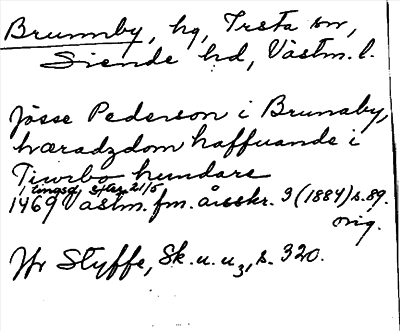 Brunnby, hg, Irsta sn,
Siende hd, Västm. l.
Jösse Pederson i Brunaby,
hæradzdom haffuande i
Tiwrbo hundare
1 tingsd. efter 21/5
1469 Västm. fm. årsskr. 3 (1884) s. 89.
orig.
Jfr Styffe, Sk. u. u3, s. 320.